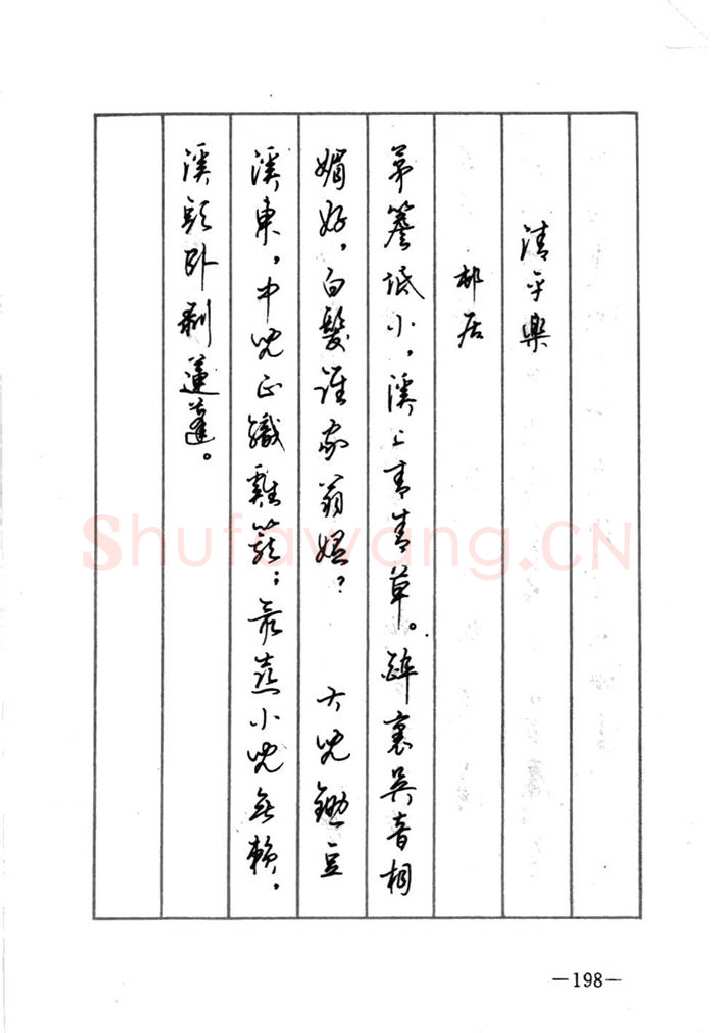 清平樂
邨居
茅簷低小，溪上青青草。醉裏吳音相
媚好，白髮誰家翁媼？ 大兒鋤豆
溪東，中兒正織雞籠；最喜小兒無賴，
溪頭卧剝蓮蓬。
Shufawang.CN
—198—